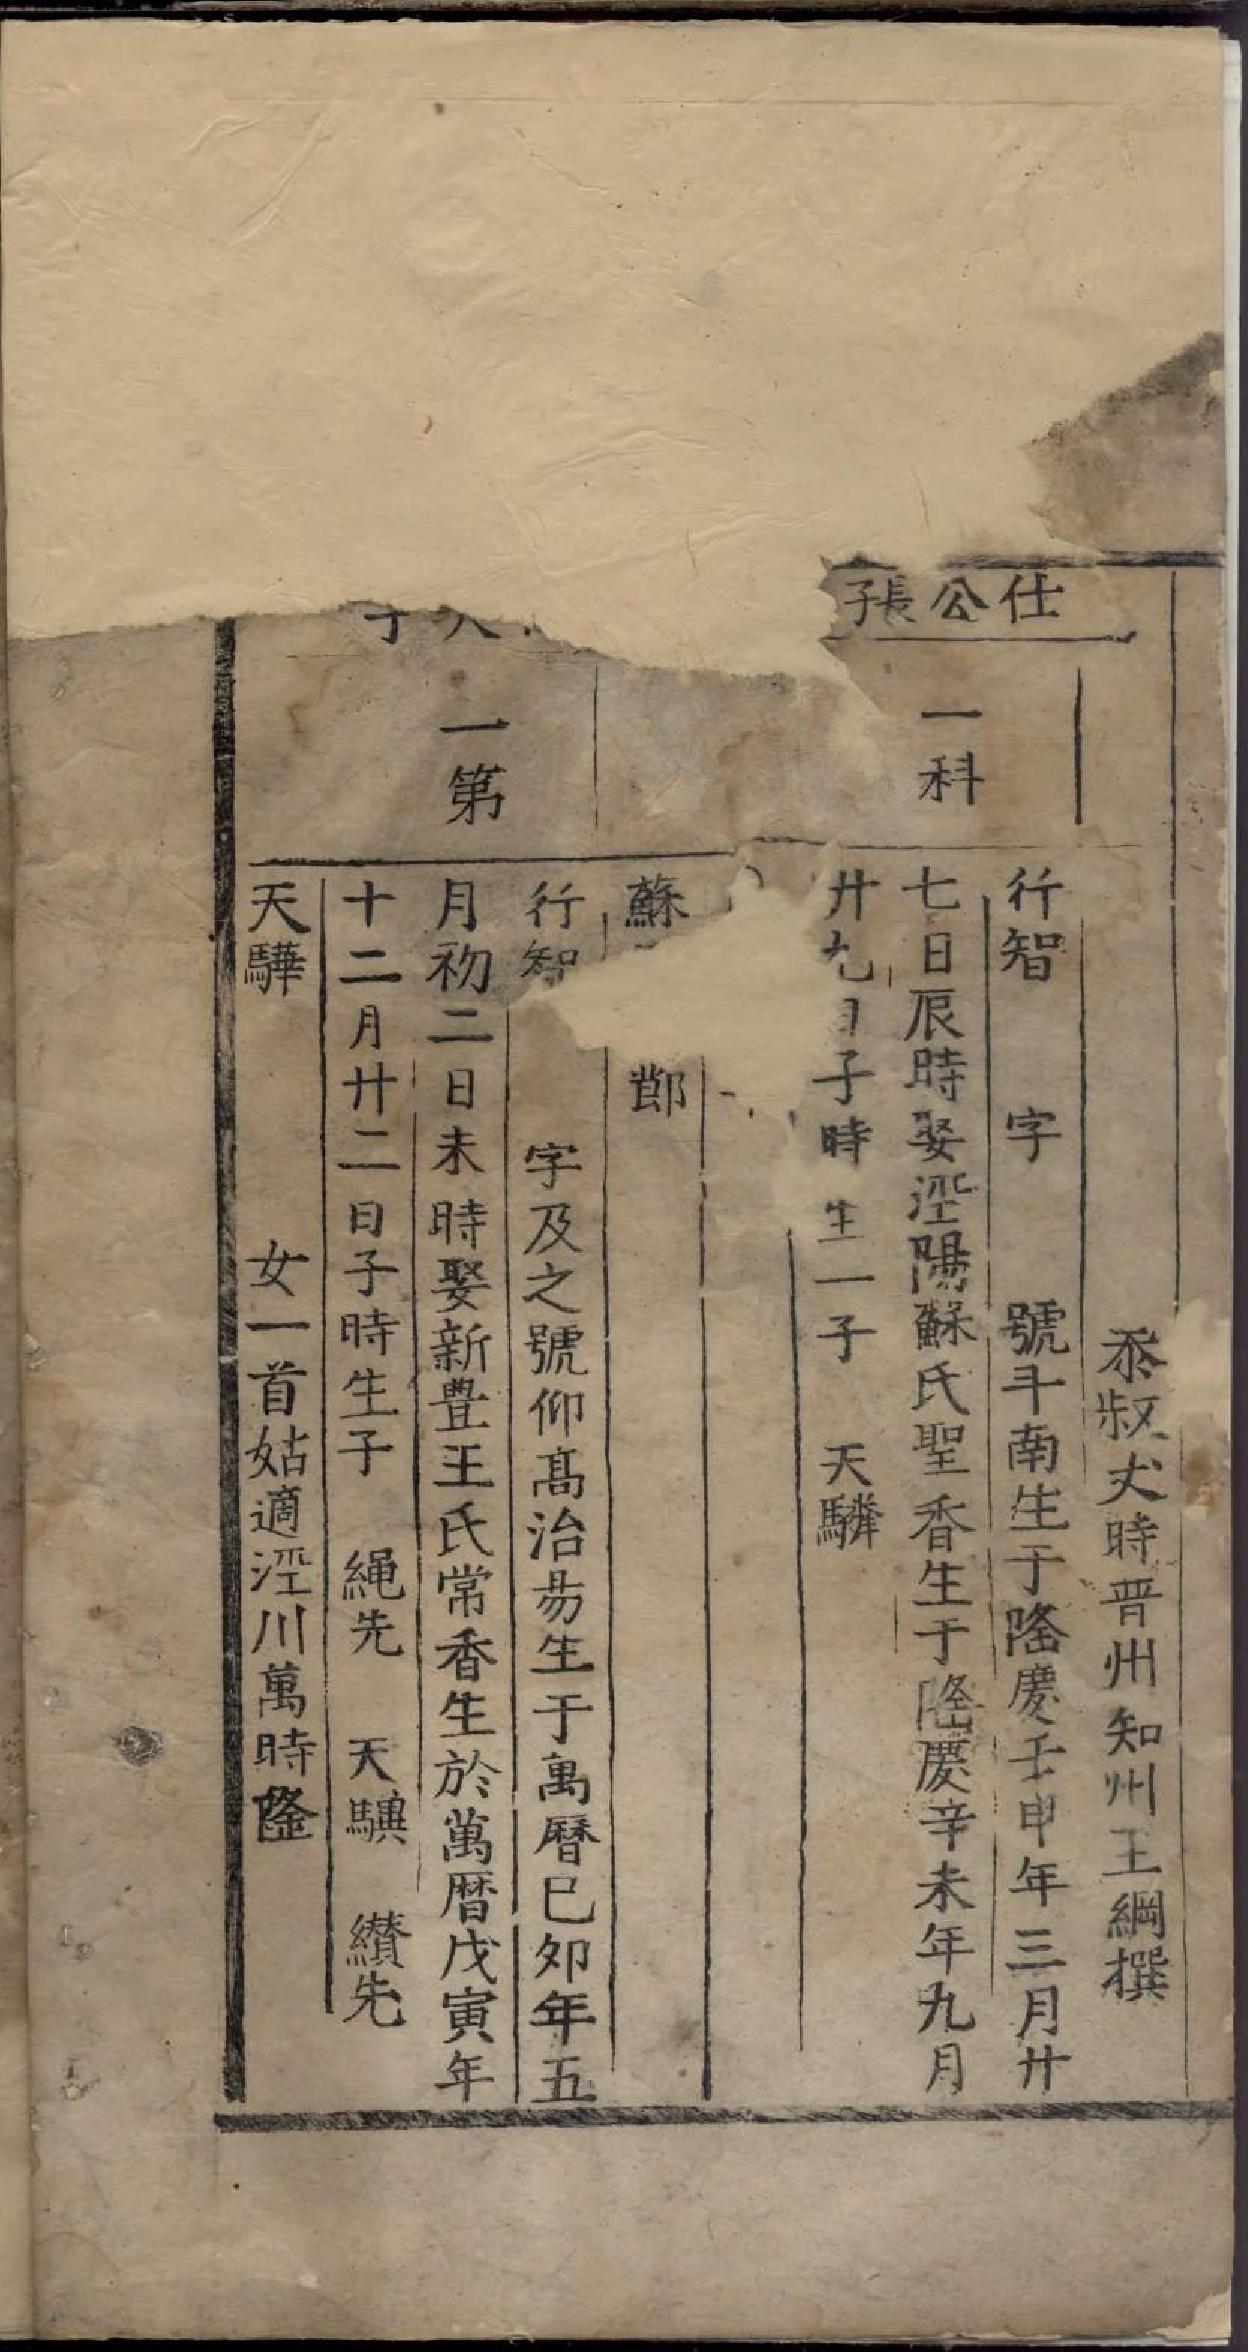 忝叔丈時晋州知州王綱撰
仕公長子
一科
行智 字 號斗南生于隆慶壬申年三月廿
七日辰時娶涇陽蘇氏聖香生于隆慶辛未年九月
廿九日子時生一子 天驎
蘇 郎
一第
行智 字及之號仰髙治昜生于萬曆巳夘年五
月初二日未時娶新豊王氏常香生於萬曆戊寅年
十二月廿二日子時生子 繩先 天驥 纘先
天驊 女一首姑適涇川萬時隆